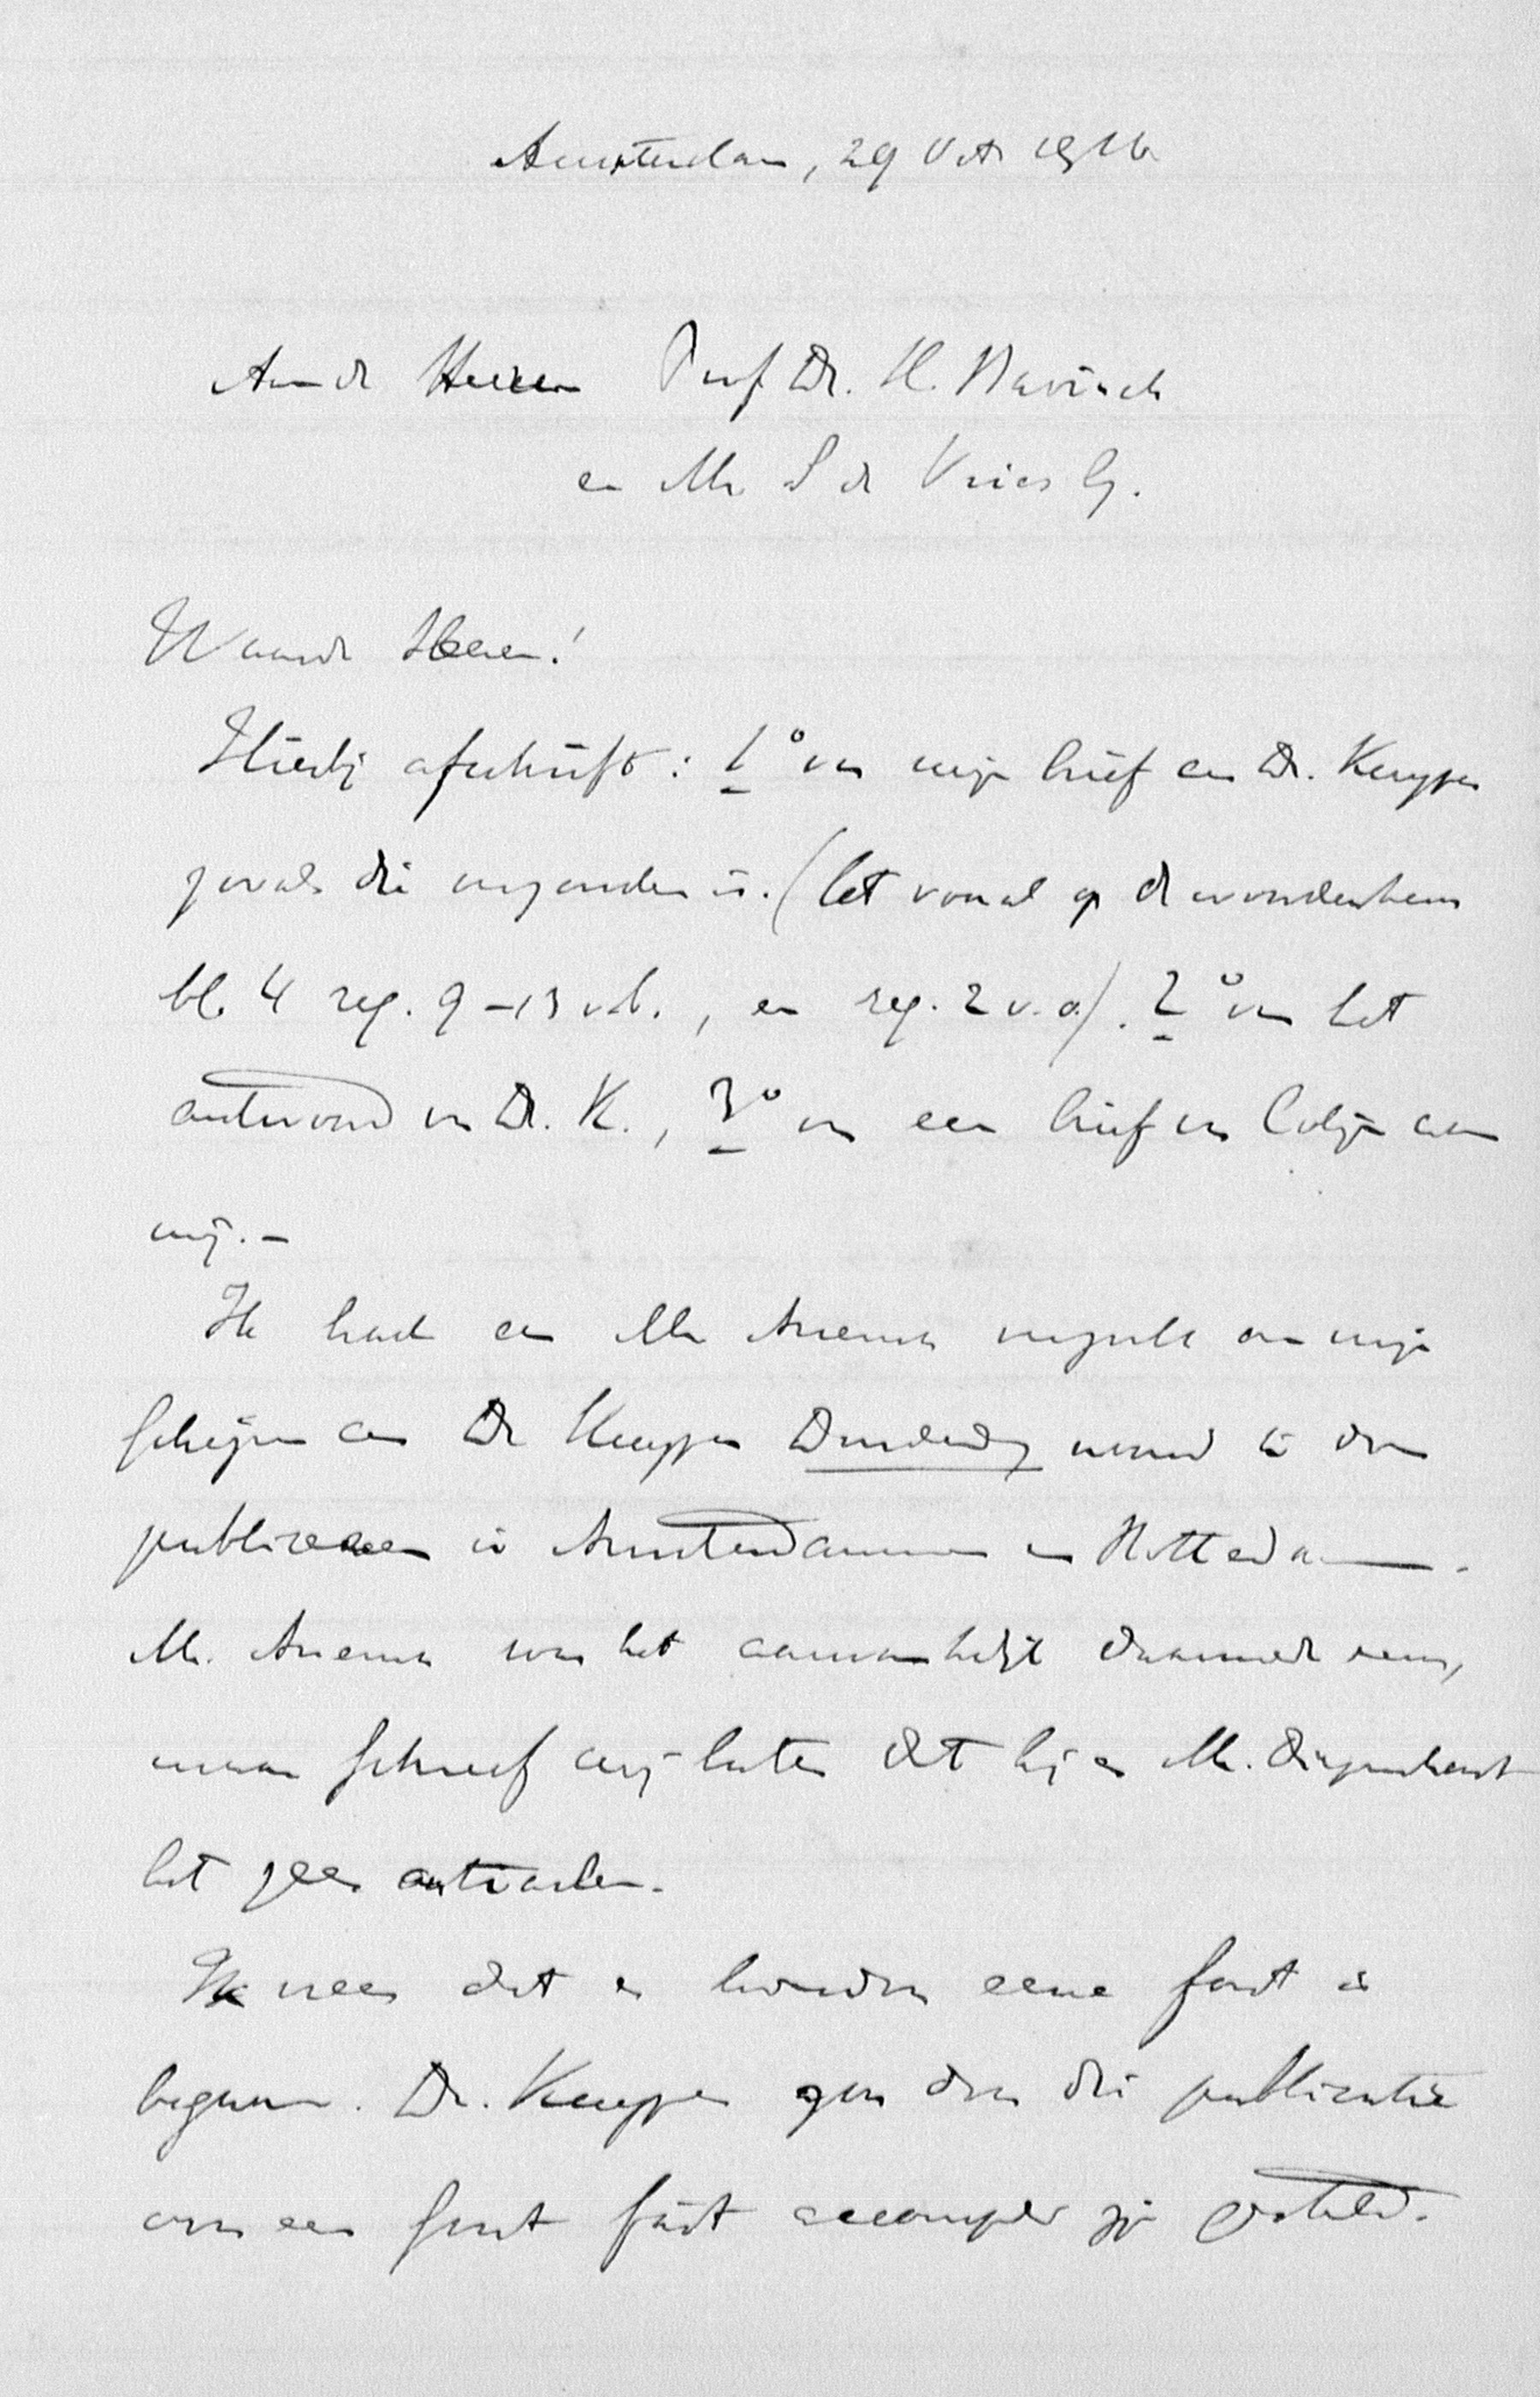 Amsterdam, 29 Oct 1916
Aan de Heeren Prof Dr. H. Bavinck
en Mr S de Vries Cz.
Waarde Heeren!
Hierbij afschrift: 1° van mijn brief aan Dr. Kuyper
zooals die verzonden is. (let vooral op de
blz 4 reg. 9-13 v.b., en reg. 2 v.o.). 2° van het
antwoord van Dr. K., 3° van een brief van Colijn aan
mij. -
Ik had aan Mr Anema voorgesteld om mijn
schrijven aan Dr Kuyper Donderdag avond te doen
publiceeren in Amsterdammer en Rotterdammer.
Mr. Anema was het aanvankelijk daarmede eens,
maar schreef mij later dat hij en Mr. Diepenhorst
het geen
Ik vrees dat er hierdoor eene fout is
begaan. Dr. Kuyper zou door die publicatie
voor een fait accompli zijn gesteld.